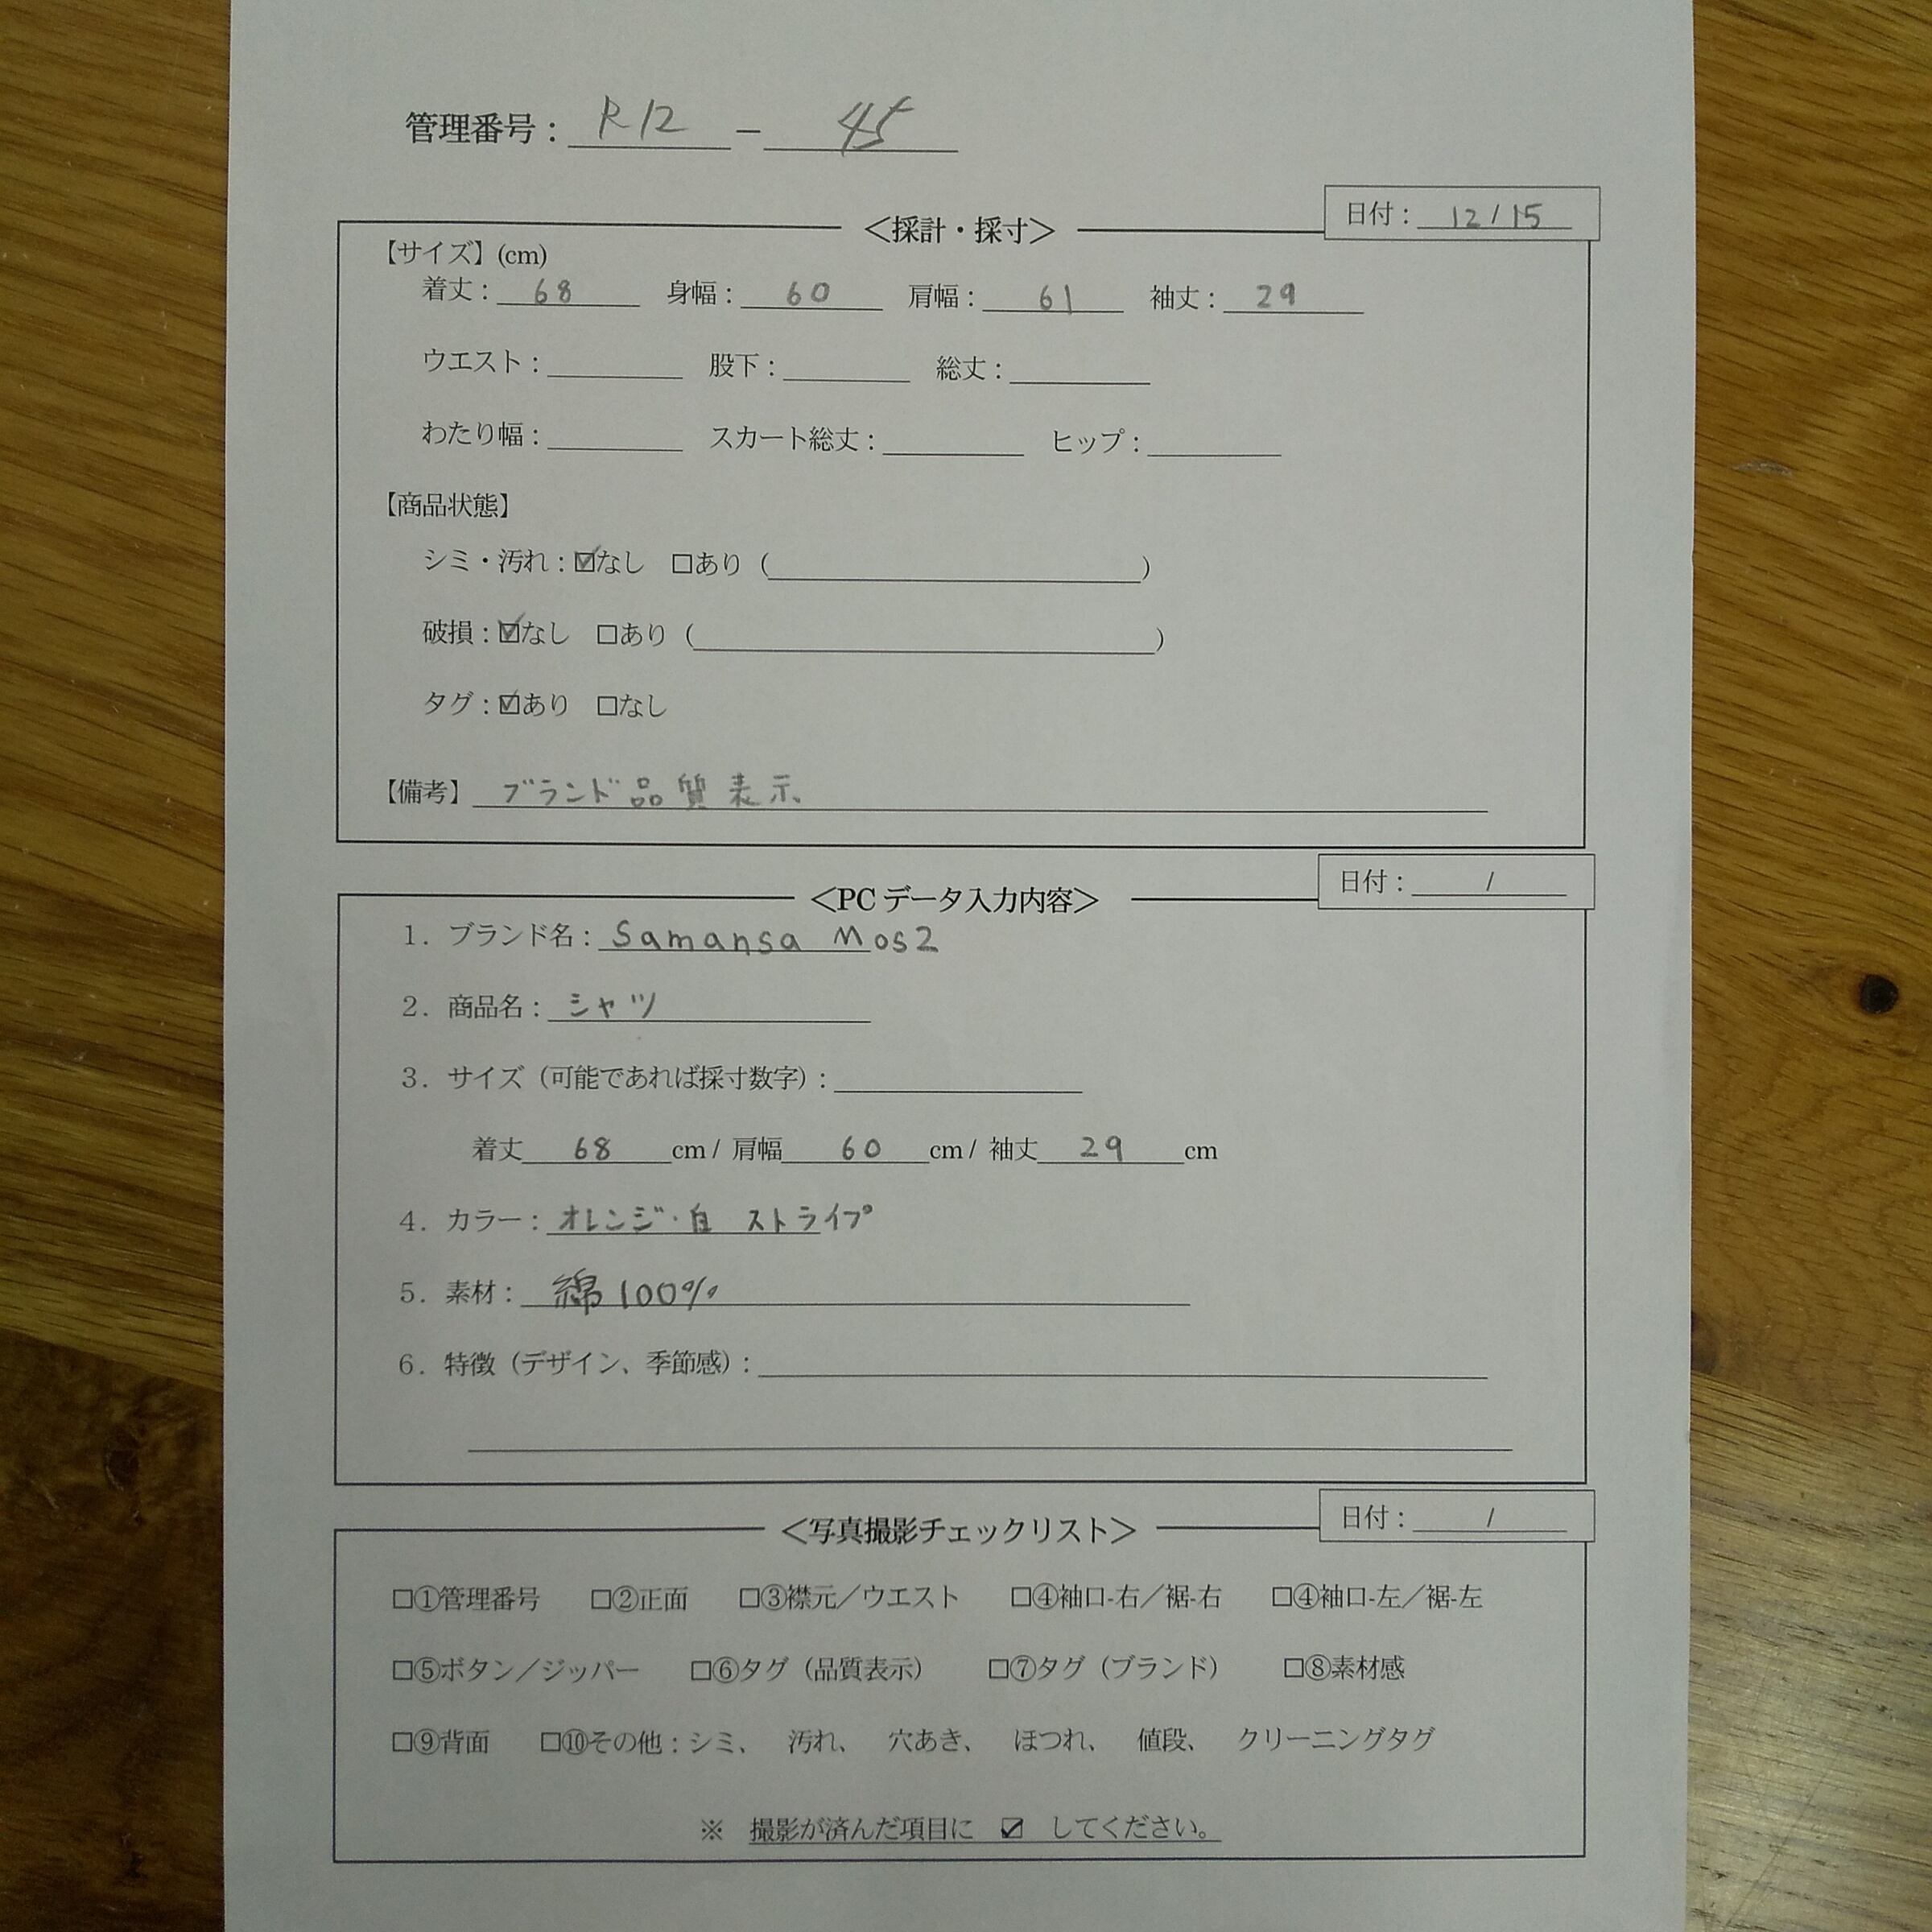 管理番号：R12 － 45
日付：12/15
＜採計・採寸＞
【サイズ】(cm)
着丈：68 身幅：60 肩幅：61 袖丈：29
ウエスト： 股下： 総丈：
わたり幅： スカート総丈： ヒップ：
【商品状態】
シミ・汚れ：☑なし □あり（ ）
破損：☑なし □あり（ ）
タグ：☑あり □なし
【備考】ブランド品質表示
日付： /
＜PCデータ入力内容＞
1．ブランド名：Samansa Mos2
2．商品名：シャツ
3．サイズ（可能であれば採寸数字）：
着丈 68 cm / 肩幅 60 cm / 袖丈 29 cm
4．カラー：オレンジ・白 ストライプ
5．素材：綿100%
6．特徴（デザイン、季節感）：
日付： /
＜写真撮影チェックリスト＞
□①管理番号 □②正面 □③襟元／ウエスト □④袖口-右／裾-右 □④袖口-左／裾-左
□⑤ボタン／ジッパー □⑥タグ（品質表示） □⑦タグ（ブランド） □⑧素材感
□⑨背面 □⑩その他：シミ、 汚れ、 穴あき、 ほつれ、 値段、 クリーニングタグ
※ 撮影が済んだ項目に ☑ してください。